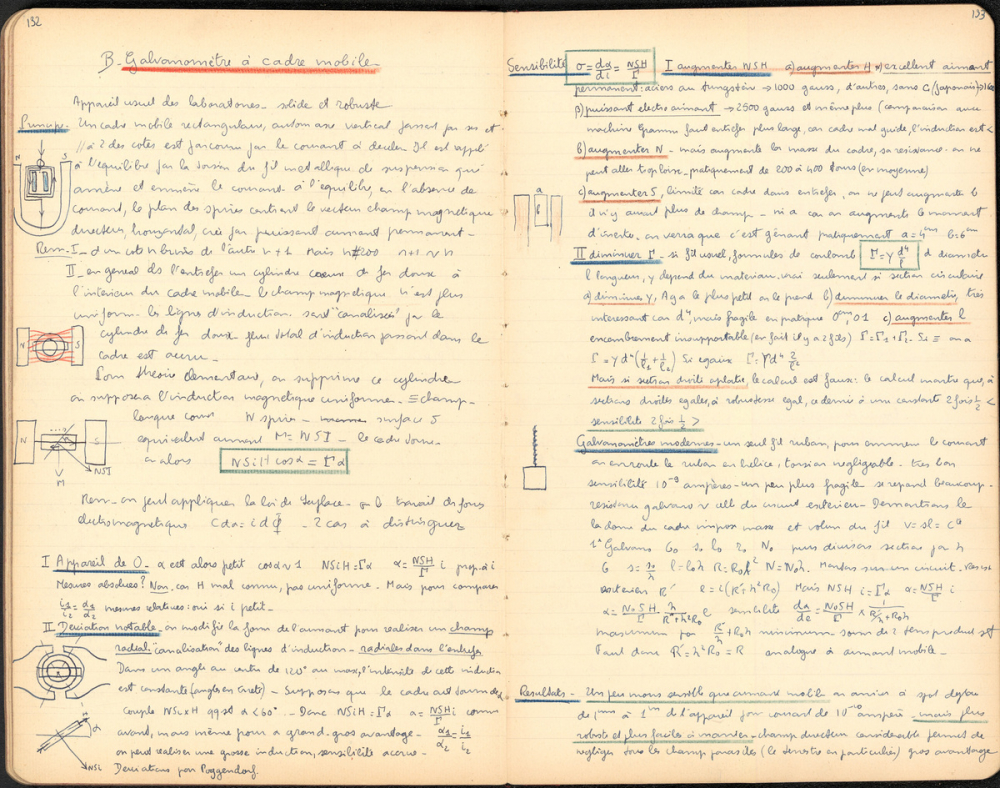 132
B. Galvanomètre à cadre mobile.
Appareil usuel des laboratoires - solide et robuste
Principe. Un cadre mobile rectangulaire, autour axe vertical passant par ses et
// à 2 des cotés est parcouru par le courant à deceler. Il est rappelé
à l'equilibre par la torsion du fil metallique de suspension qui
amène et emmène le courant. à l'equilibre, en l'absence de
courant, le plan des spires contient le vecteur champ magnetique
directeur, horizontal, crée par puissant aimant permanent.
N S
Rem. I - d'un coté n brins de l'autre n+1 Mais n≠200 n+1 ∾ n
II - en general ds l'entrefer un cylindre coeur de fer doux à
l'interieur du cadre mobile. le champ magnetique n'est plus
uniforme. les lignes d'induction sont "canalisées" par le
cylindre de fer doux. flux total d'induction passant dans le
cadre est accru.
N S
Pour théorie elementaire, on supprime ce cylindre
on supposera l'induction magnetique uniforme. ≡ champ.
lorsque courant N spires - surface S
equivalent aimant M = NSI - le cadre tourne.
on alors NSiH cos α = Γα
N S NSI M
Rem - on peut appliquer la loi de Laplace. ou le travail des forces
electromagnetique Cdα = i dΦ - 2 cas à distinguer
I Appareil de O. α est alors petit cosα ∾ 1 NSiH = Γα α = NSH/Γ i prop. à i
Mesures absolues? Non, car H mal connu, pas uniforme. Mais pour comparer
i₁/i₂ = α₁/α₂ mesures relatives: oui si i petit.
II Deviation notable. on modifie la forme de l'aimant pour realiser un champ
radial. (canalisation des lignes d'induction - radiales dans l'entrefer
Dans un angle au centre de 120° au max, l'intensité de cette induction
est constante (angles en arete) - Supposons que le cadre ait tourné de α
couple NSi x H qq soit α < 60°. - Donc NSiH = Γα α = NSH/Γ i comme
avant, mais même pour α grand. gros avantage. α₁/α₂ = i₁/i₂
on peut realiser une grosse induction, sensibilité accrue.
α NSi Deviations par Poggendorf.
133
Sensibilité σ = dα/di = NSH/Γ I augmenter NSH a) augmenter H α) excellent aimant
permanent: aciers au tungstène → 1000 gauss, d'autres, sans C (japonais)
β) puissant electro aimant → 2500 gauss et même plus (comparaison avec
machine Gramme faut entrefer plus large, car cadre mal guidé, l'induction est <
b) augmenter N - mais augmente la masse du cadre, sa resistance. on ne
peut aller trop loin. pratiquement de 200 à 400 tours (en moyenne)
c) augmenter S, limité car cadre dans entrefer, on ne peut augmenter b
il n'y aurait plus de champ - ni a car on augmente le moment
d'inertie. on verra que c'est gênant pratiquement a = 4cm b = 6cm
a b
II diminuer Γ. si fil usuel, formules de coulomb Γ = γ d⁴/l d diametre
l longueur, γ depend du materiau. vrai seulement si section circulaire
a) diminuer γ, Ag a le plus petit on le prend b) diminuer le diametre, très
interessant car d⁴, mais fragile en pratique 0mm,01 c) augmenter l
encombrement insupportable (en fait il y a 2 fils) Γ = Γ₁ + Γ₂. Si ≡ on a
Γ = γd⁴(1/l₁ + 1/l₂) Si egaux Γ = γd⁴ 2/l
Mais si section droite aplatie, le calcul est faux: le calcul montre que, à
sections droites egales, à robustesse egale, ce dernier à une constante 2 fois ½ <
sensibilité 2 fois ½ >
Galvanomètres modernes - un seul fil ruban, pour emmener le courant
on enroule le ruban en helice, torsion negligeable. très bon
sensibilité 10⁻⁹ ampères - un peu plus fragile se repand beaucoup.
resistance galvano ∾ cell du circuit exterieur - Demontrons le
la donnée du cadre impose masse et volume du fil v = sl = Cte
1er Galvano G₀ s₀ l₀ r₀ N₀ puis divisons section par h
G s = s₀/h l = l₀h R = R₀h² N = N₀h. Montons sur un circuit. Resist
exterieure R' e = i(R' + h²R₀) Mais NSH i = Γα α = NSH/Γ i
α = N₀SH/Γ h/(R' + h²R₀) e sensibilité dα/de = N₀SH/Γ × 1/(R'/h + R₀h)
maximum par R'/h + R₀h minimum. somme de 2 tens produit est
Faut donc R' = h²R₀ = R analogue à aimant mobile.
Resultats - Un peu moins sensible que aimant mobile on arrive à spot deplace
de 1mm à 1m de l'appareil pour courant de 10⁻¹⁰ ampère. mais plus
robuste et plus faciles à manier - champ directeur considerable permet de
negliger tous les champ parasites (le terrestre en particulier) gros avantage